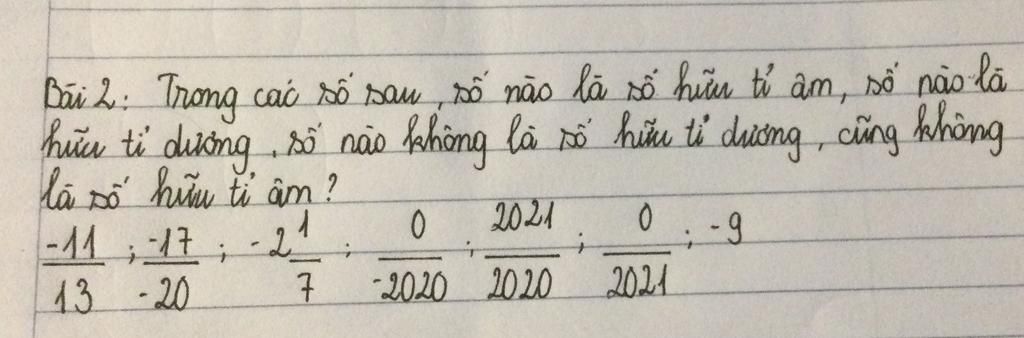 Bài 2: Trong các số sau, số nào là số hữu tỉ âm, số nào là
hữu tỉ dương, số nào không là số hữu tỉ dương, cũng không
là số hữu tỉ âm?
-11/13 ; -17/-20 ; -2 1/7 ; 0/-2020 ; 2021/2020 ; 0/2021 ; -9